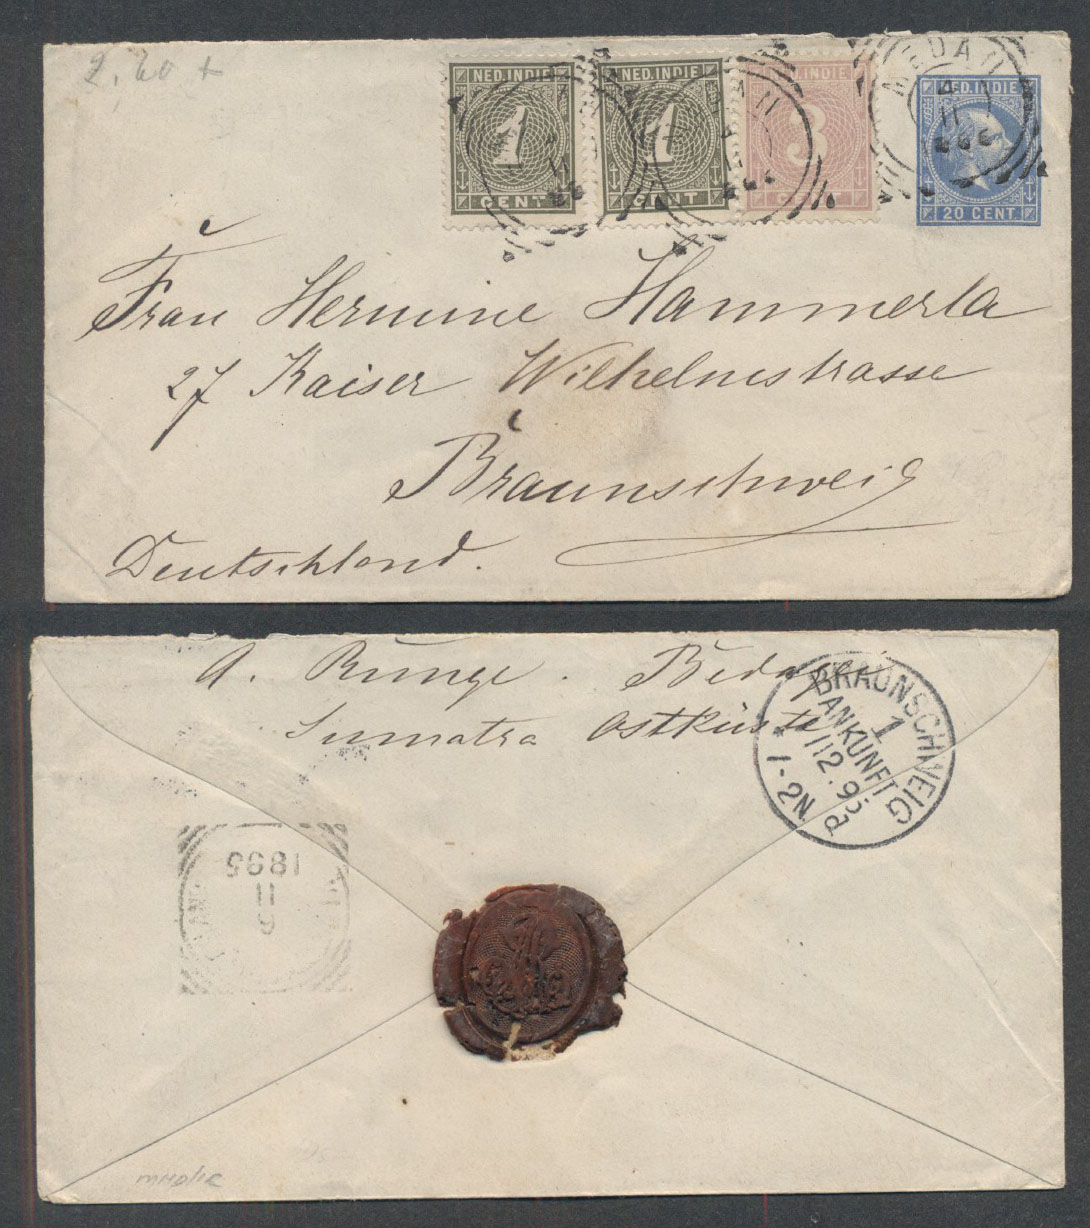 2.60 +
NED.INDIE NED.INDIE NED.INDIE NED.INDIE
1 1 3
CENT CENT 20 CENT
MEDAN
4
11
Frau Hermine Hammerla
27 Kaiser Wilhelmstrasse
Braunschweig
Deutschland.
A. Runge. Bedagei
Sumatra Ostküste
BRAUNSCHWEIG
1
ANKUNFT
112.95
1-2N
6
11
1895